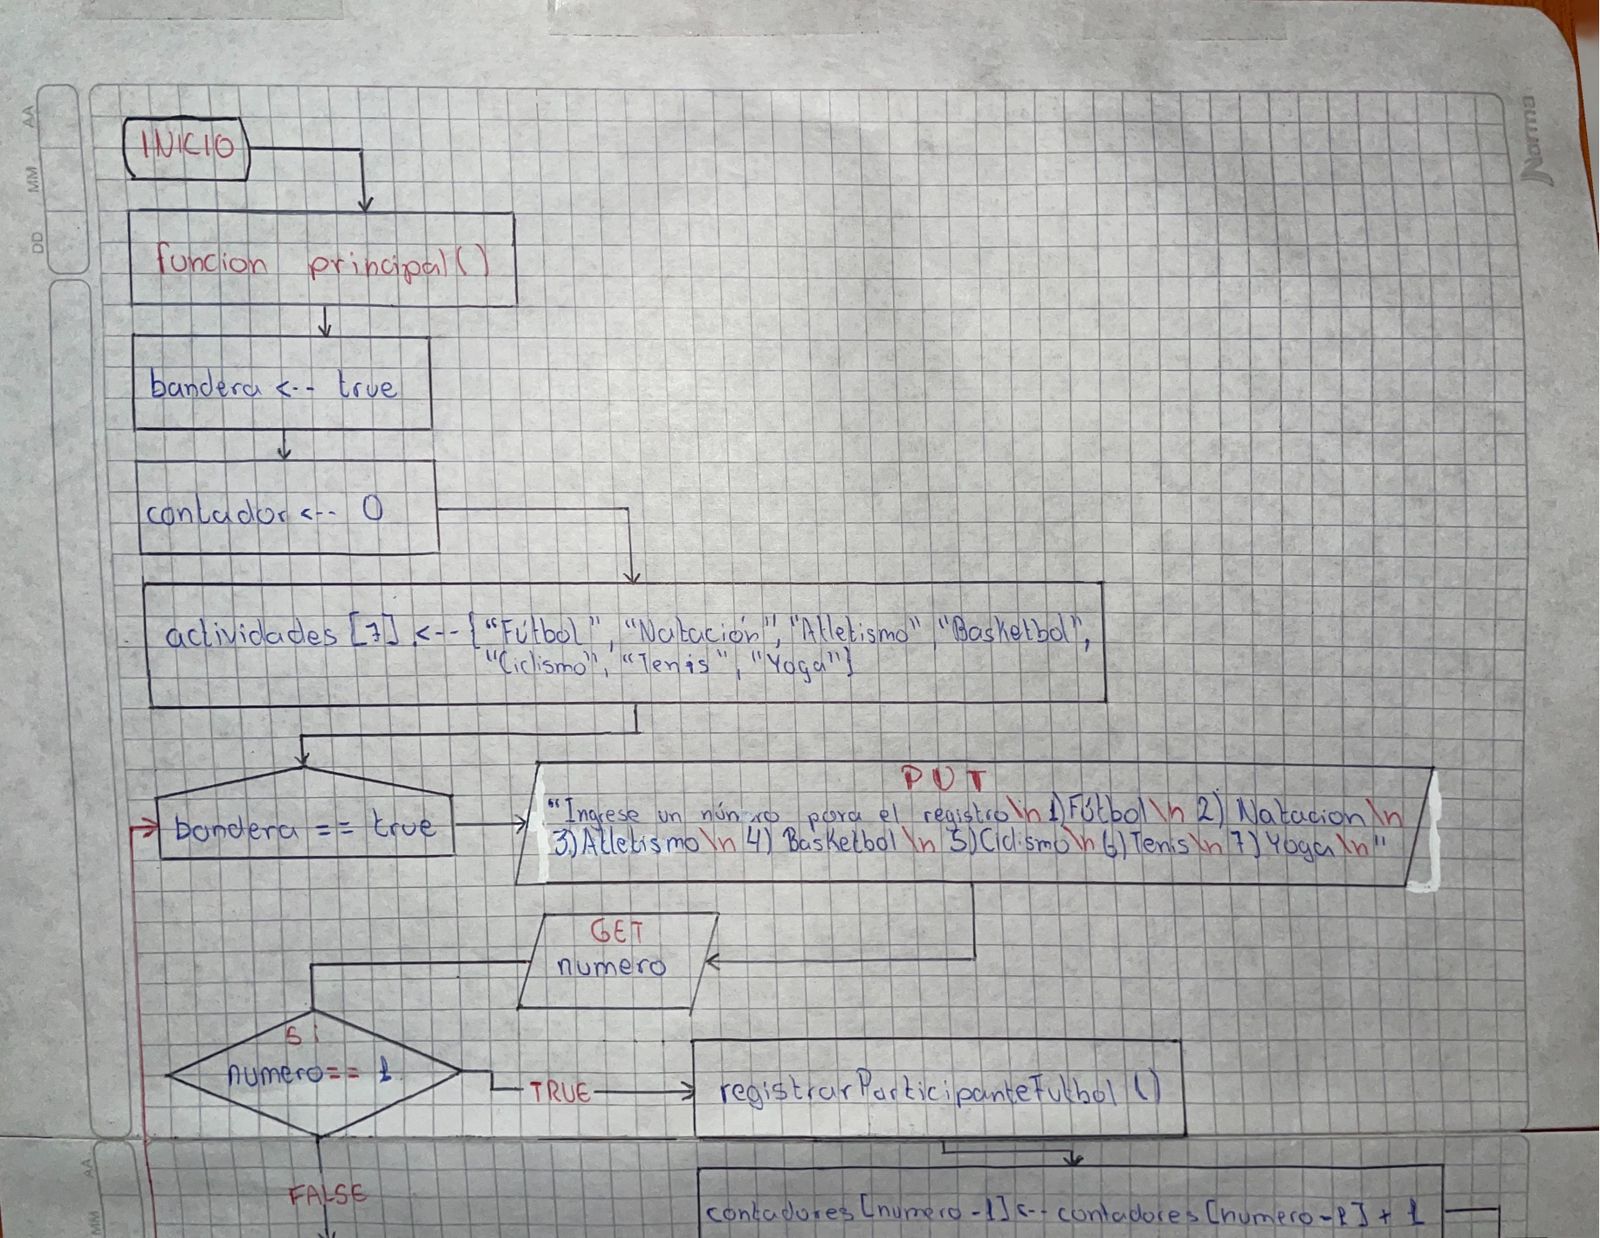 AA
MM
DD
Norma
INICIO
funcion principal()
bandera <-- true
contador <-- 0
actividades [7] <-- {"Fútbol", "Natación", "Atletismo" "Basketbol",
"Ciclismo", "Tenis", "Yoga"}
bandera == true
PUT
"Ingrese un número para el registro\n 1)Fútbol\n 2) Natacion\n
3)Atletismo\n 4) Basketbol\n 5)Ciclismo\n 6)Tenis\n 7)Yoga\n"
GET
numero
Si
numero== 1
TRUE
registrarParticipanteFutbol ()
FALSE
AA
MM
contadores [numero -1] <-- contadores [numero -1] + 1